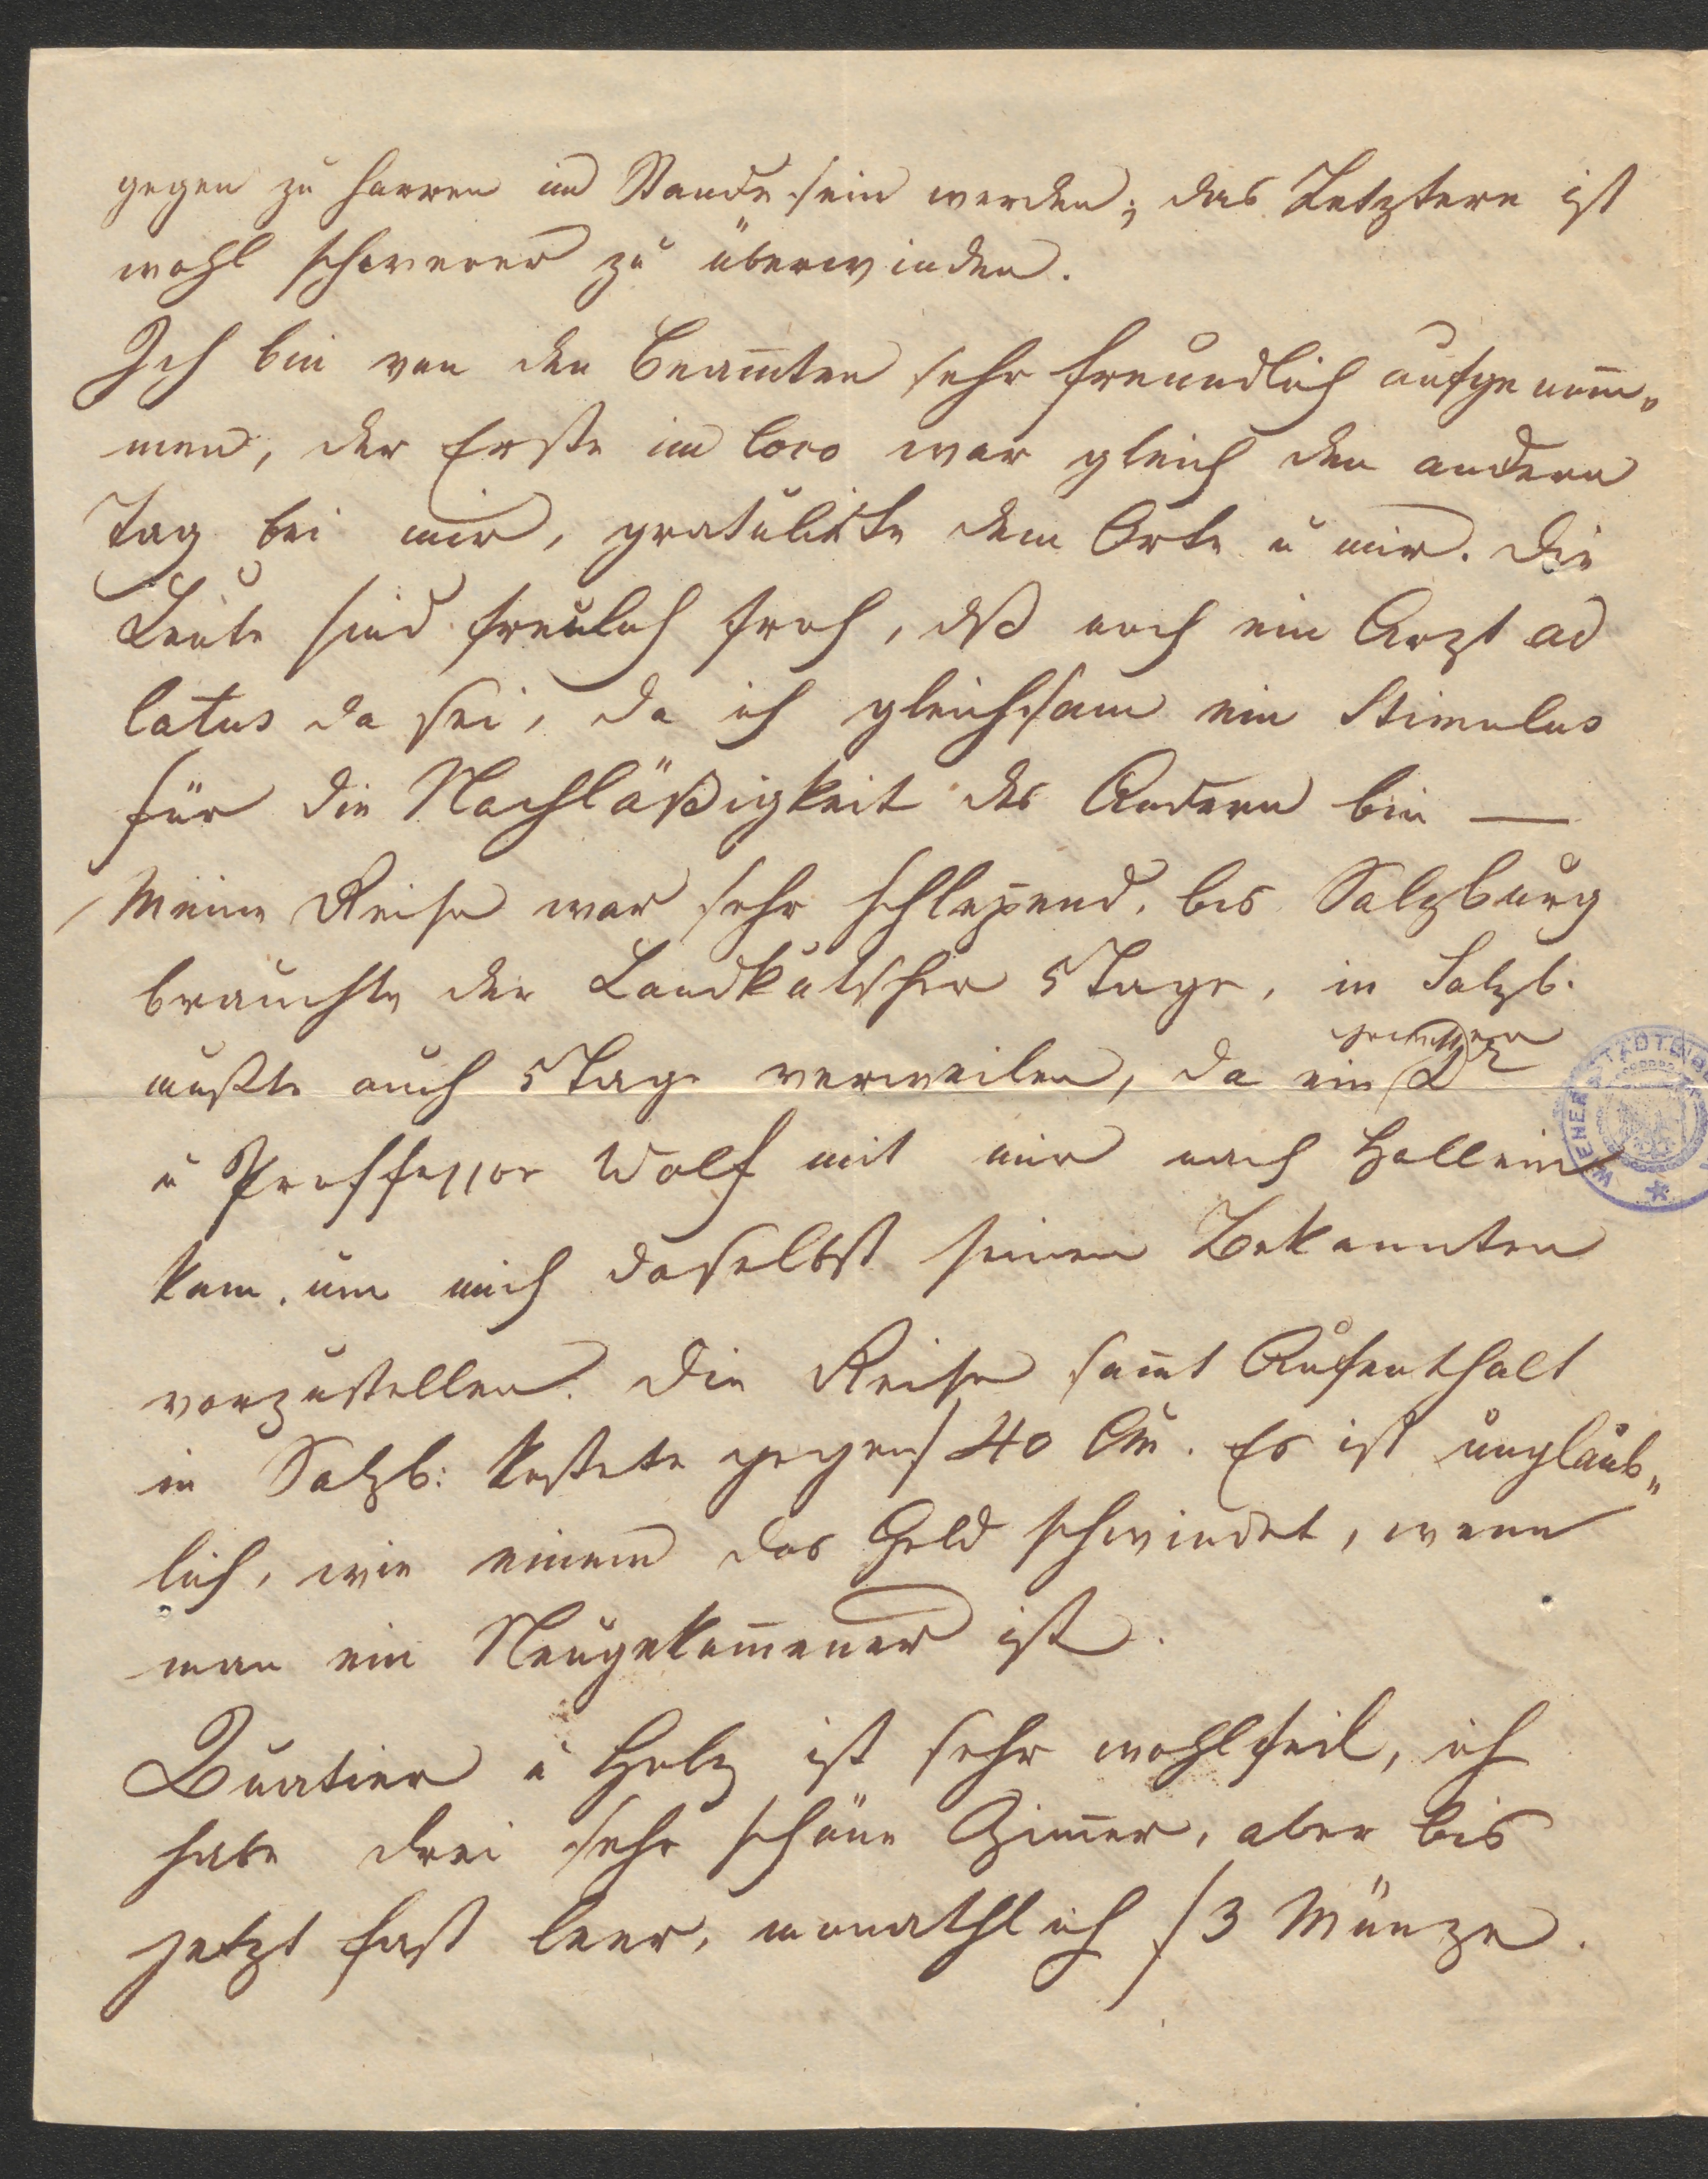 gegen zu harren im Stande sein werden; das Letztere ist
wohl schwerer zu überwinden.
Ich bin von den Beam̅ten sehr freundlich aufgenom̅-
men, der Erste in loco war gleich den andern
Tag bei mir, gratulirte dem Orte u mir. Die
Leute sind freulich froh, dß noch ein Arzt ad
latus da sei, da ich gleichsam ein Stimulus
für die Nachläßigkeit des Andern bin —
Meine Reise war sehr schlep̅end, bis Salzburg
brauchte der Landkutscher 5 Tage, in Salzb.
mußte auch 5 Tage verweilen, da ein Dr
u Proffessor Wolf mit mir nach Hallein
kam, um mich daselbst seinen Bekannten
vorzustellen. Die Reise sam̅t Aufenthalt
in Salzb: kostete gegen f 40 CM. Es ist unglaub„
lich, wie einem das Geld schwindet, wenn
man ein Neugekom̅ener ist.
Quatier u Holz ist sehr wohlfeil, ich
habe drei sehr schöne Zim̅er, aber bis
jetzt fast leer, monathlich f 3 Münze.
WIENER STADTBIB